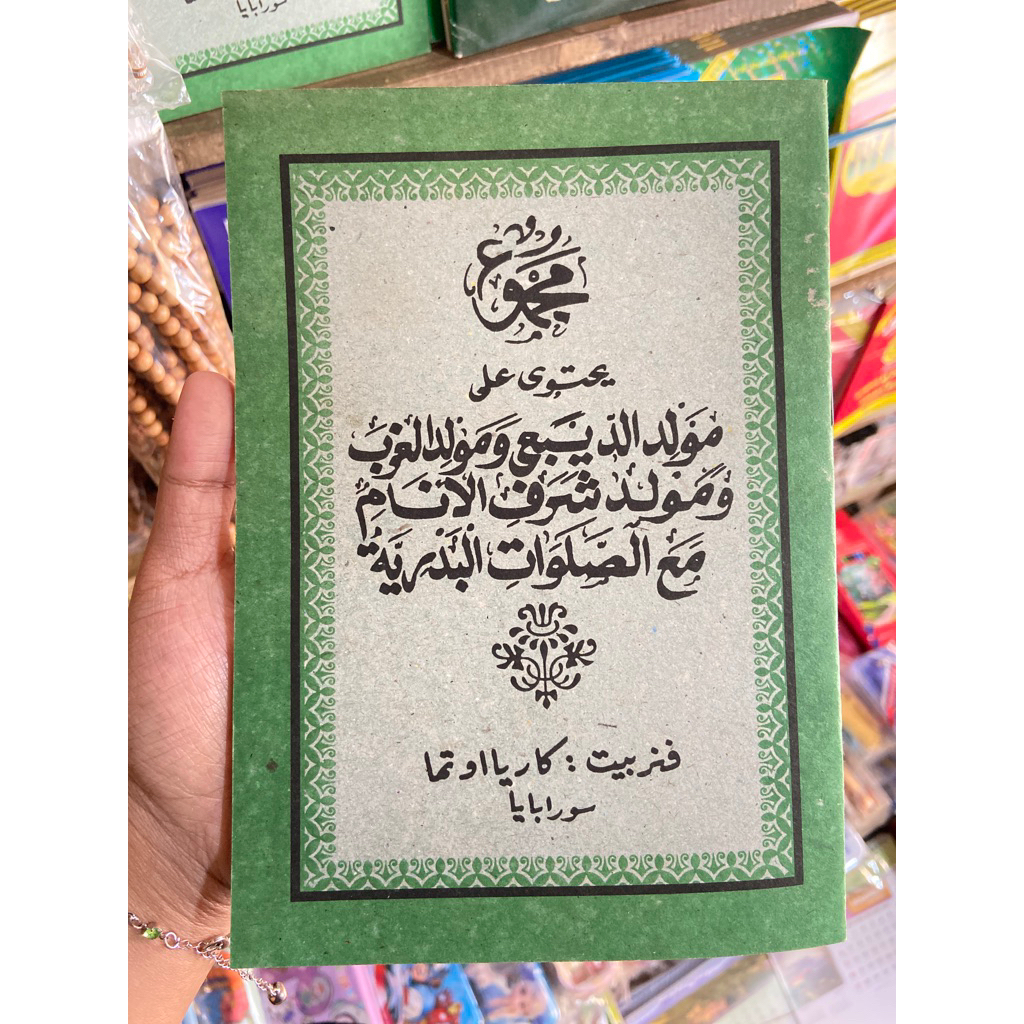 سورابايا
مجموع
يحتوى على
مَوْلِد الدِّيْبَعِي وَمَوْلِد الْعَزَبِ
وَمَوْلِد شَرَفِ الْأَنَامِ
مَعَ الصَّلَوَاتِ الْبَدْرِيَّةُ
فنربيت : كاريا اوتما
سورابايا